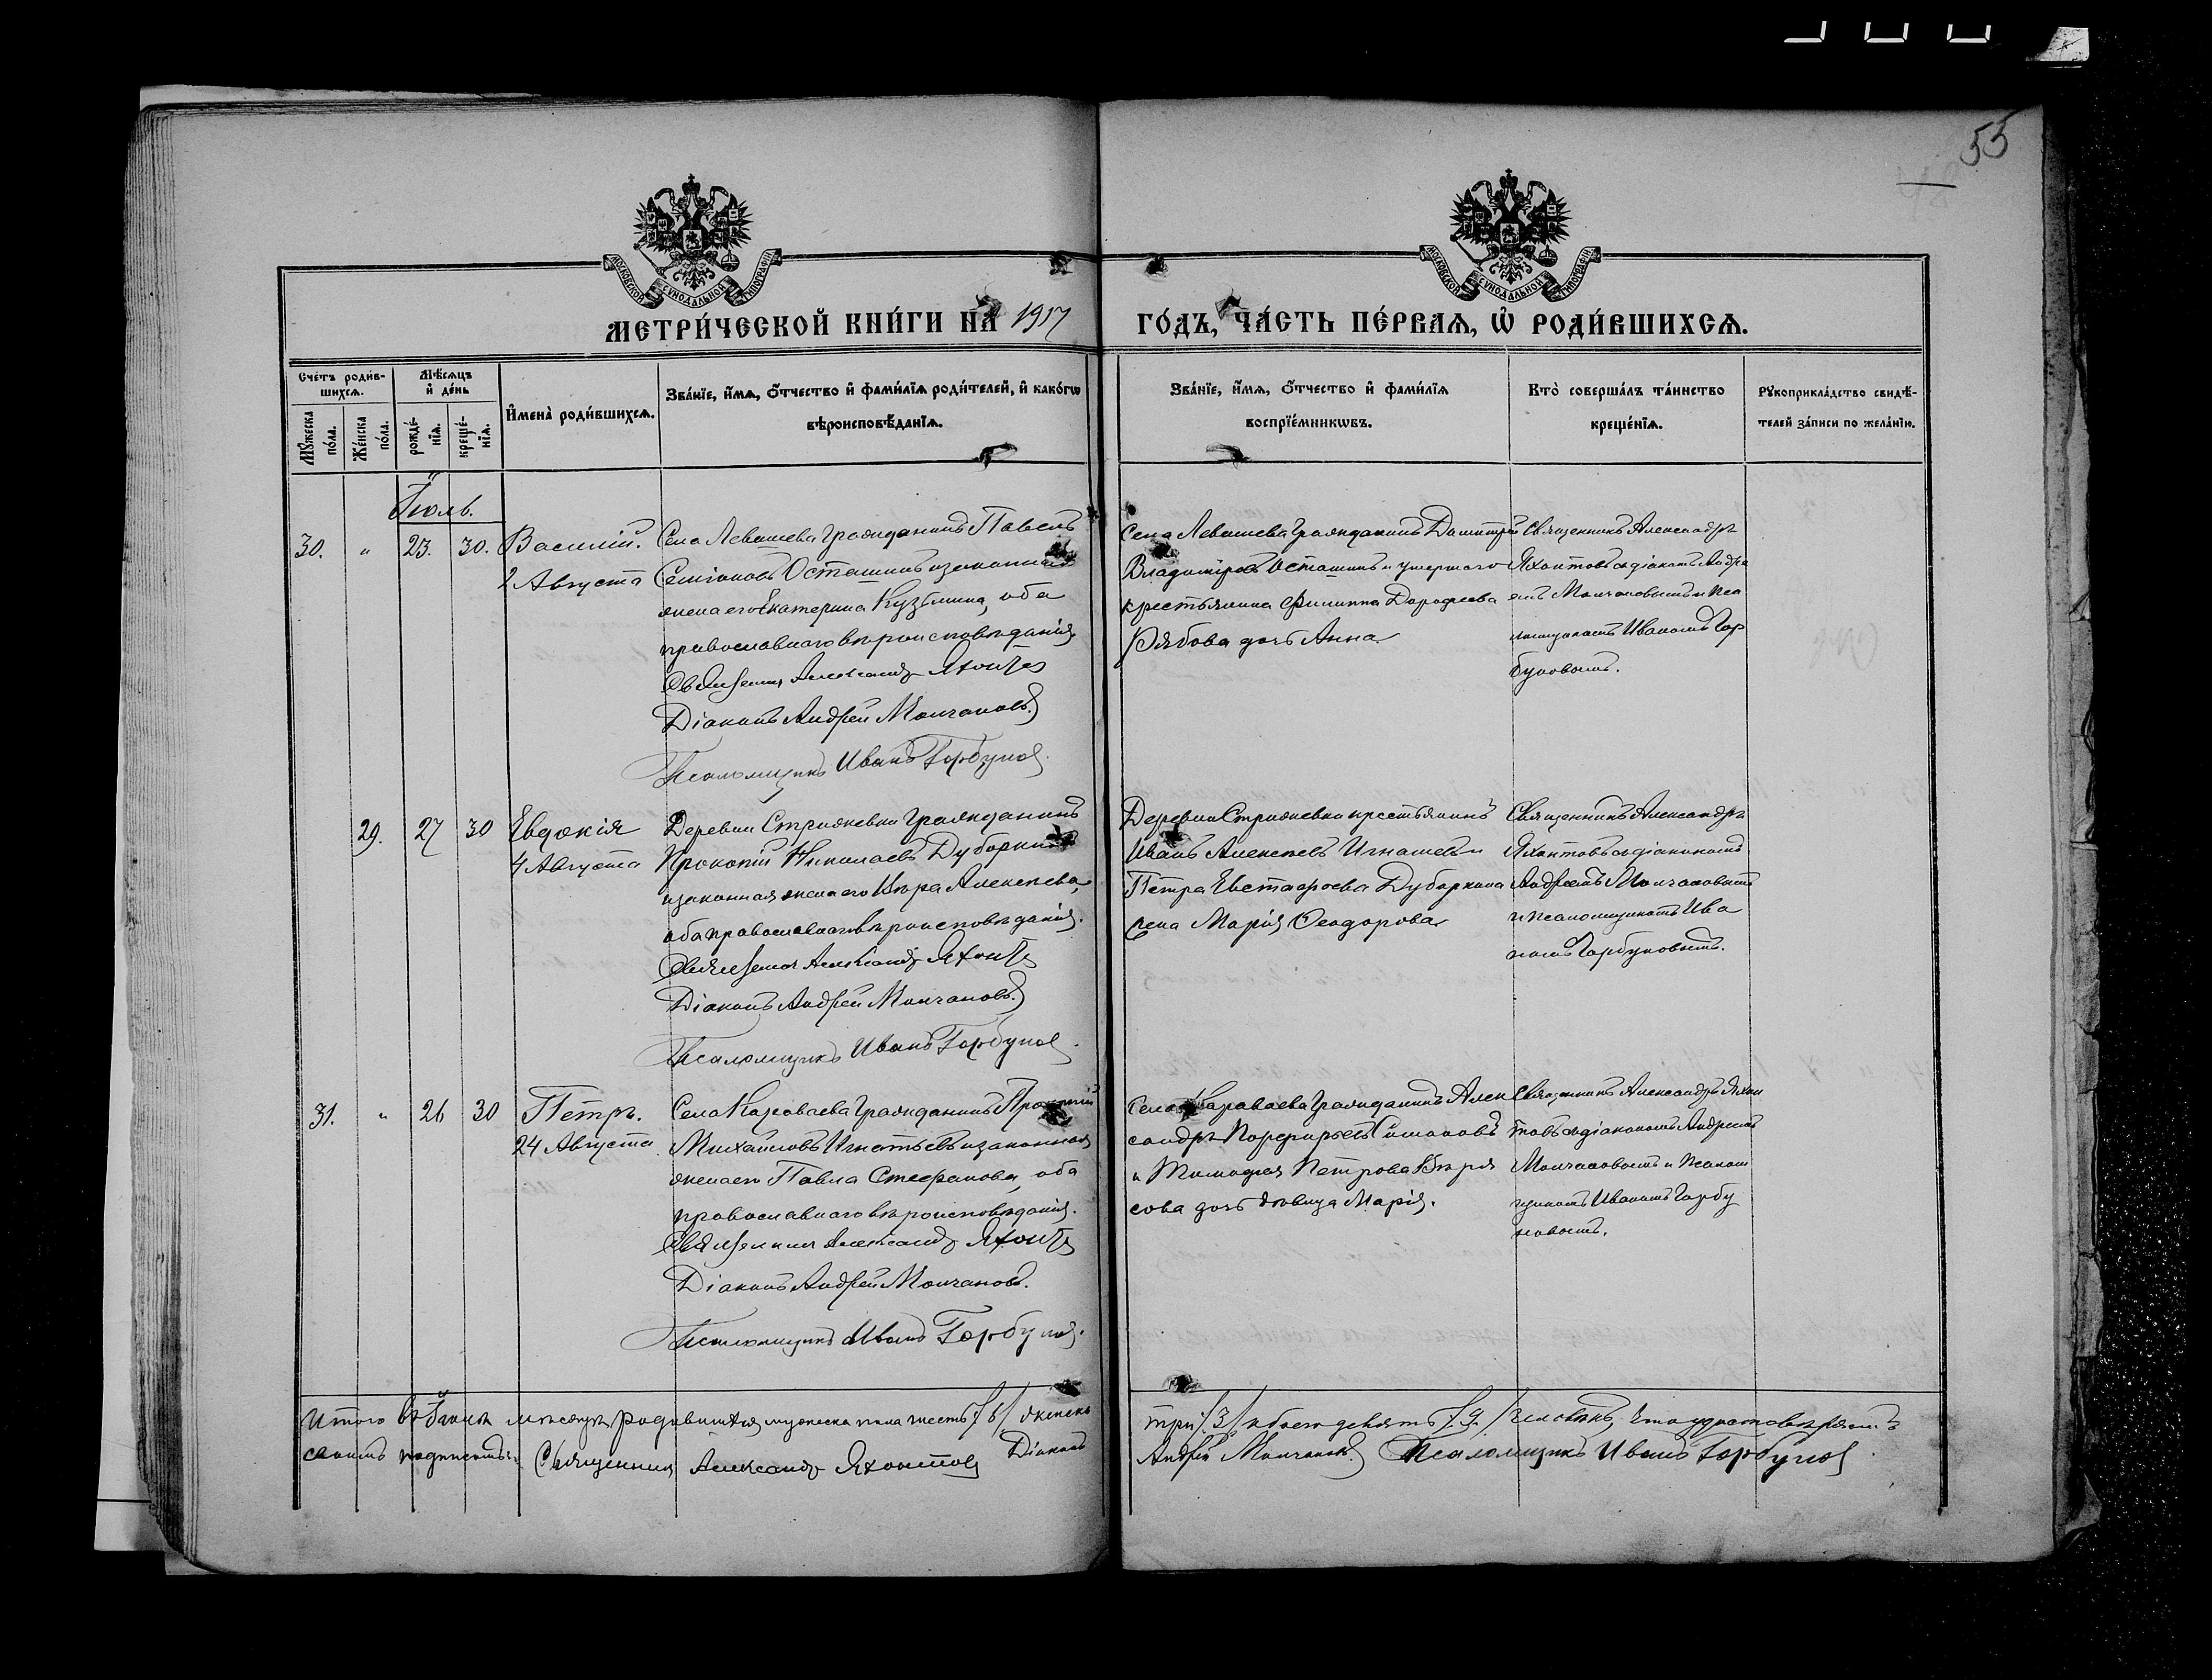 55
МОСКОВСКОЙ СУНОДАЛЬНОЙ ТИПОГРАФІИ
МОСКОВСКОЙ СУНОДАЛЬНОЙ ТИПОГРАФІИ
МЕТРИ́ЧЕСКОЙ КНИ́ГИ НА 1917
ГО́ДЪ, ЧА́СТЬ ПЕ́РВАѦ, Ѽ РОДИ́ВШИХСѦ.
Сче́тъ роди́в-
шихсѧ.
Мꙋжеска по́ла.
Же́нска по́ла.
Мѣ́сѧцъ
и҆ де́нь
рожде́-
нїѧ.
креще́-
нїѧ.
И҆мена̀ роди́вшихсѧ.
Зва́нїе, и҆́мѧ, ѻ҆́тчество и҆ фами́лїѧ роди́телей, и҆ како́гѡ
вѣроисповѣ́данїѧ.
Зва́нїе, и҆́мѧ, ѻ҆́тчество и҆ фами́лїѧ
воспрїе́мникѡвъ.
Кто̀ соверша́лъ та́инство
креще́нїѧ.
Рꙋкоприкла́дство свидѣ́-
телей за́писи по жела́нїю.
Іюль.
30. " 23. 30. Василій.
2 Августа
Села Левашева гражданинъ Павелъ
Семеновъ Осташинъ и законная
жена его Екатерина Кузьмина, оба
православнаго вѣроисповѣданія.
Священникъ Александръ Яхонтовъ
Діаконъ Андрей Молчановъ.
Псаломщикъ Иванъ Горбуновъ.
Села Левашева гражданинъ Димитрій
Владиміровъ Осташинъ и умершаго
крестьянина Филиппа Дорофеева
Рябова дочь Анна
Священникъ Александръ
Яхонтовъ съ діакономъ Андре
емъ Молчановымъ и пса
ломщикомъ Иваномъ Гор
буновымъ.
29. 27 30 Евдокія
4 Августа
Деревни Стрижевки гражданинъ
Прокопій Николаевъ Дубаркинъ
и законная жена его Вѣра Алексѣева,
оба православнаго вѣроисповѣданія.
Священникъ Александръ Яхонтовъ
Діаконъ Андрей Молчановъ.
Псаломщикъ Иванъ Горбуновъ.
Деревни Стрижевки крестьянинъ
Иванъ Алексѣевъ Игнашевъ и
Петра Евстафьева Дубаркина
жена Марія Ѳеодорова
Священникъ Александръ
Яхонтовъ съ діакономъ
Андреемъ Молчановымъ
и псаломщикомъ Ива
номъ Горбуновымъ.
31. " 26 30 Петръ.
24 Августа
Села Караваева гражданинъ
Михаиловъ Игнатьевъ и законная
жена его Павла Стефанова, оба
православнаго вѣроисповѣданія.
Священникъ Александръ Яхонтовъ
Діаконъ Андрей Молчановъ.
Псаломщикъ Иванъ Горбуновъ.
Села Караваева гражданинъ Алек
сандръ Порфирьевъ
и Тимофея Петрова
сова дочь дѣвица Марія.
Священникъ Александръ Яхон
товъ съ діакономъ Андреемъ
Молчановымъ и псалом
щикомъ Иваномъ Горбу
новымъ.
Итого въ Іюлѣ мѣсяцѣ родившихся мужеска пола шесть /6/ женска
три /3/ и обоего девять /9/ человѣкъ, что удостовѣряемъ
своимъ подписомъ: Священникъ Александръ Яхонтовъ Діаконъ
Андрей Молчановъ. Псаломщикъ Иванъ Горбуновъ.